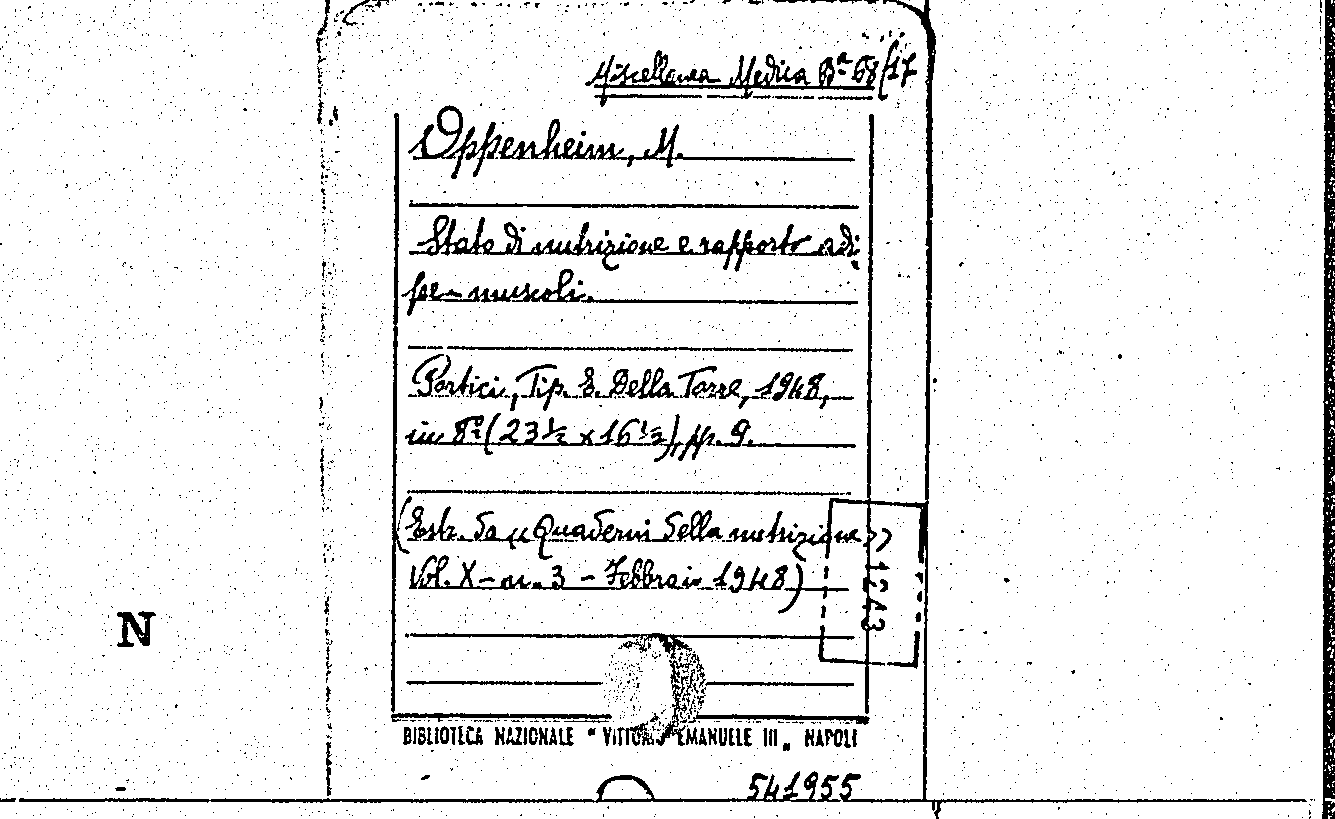 Miscellanea Medica Bª 68/17
Oppenheim, M.
Stato di nutrizione e rapporto adi-
pe-muscoli.
Portici, Tip. E. Della Torre, 1948,
in 8º (23½ x 16½), pp. 9.
(Estr. da « Quaderni della nutrizione »
Vol. X - n. 3 - Febbraio 1948)
1243
N
BIBLIOTECA NAZIONALE " VITTORIO EMANUELE III „ NAPOLI
541955